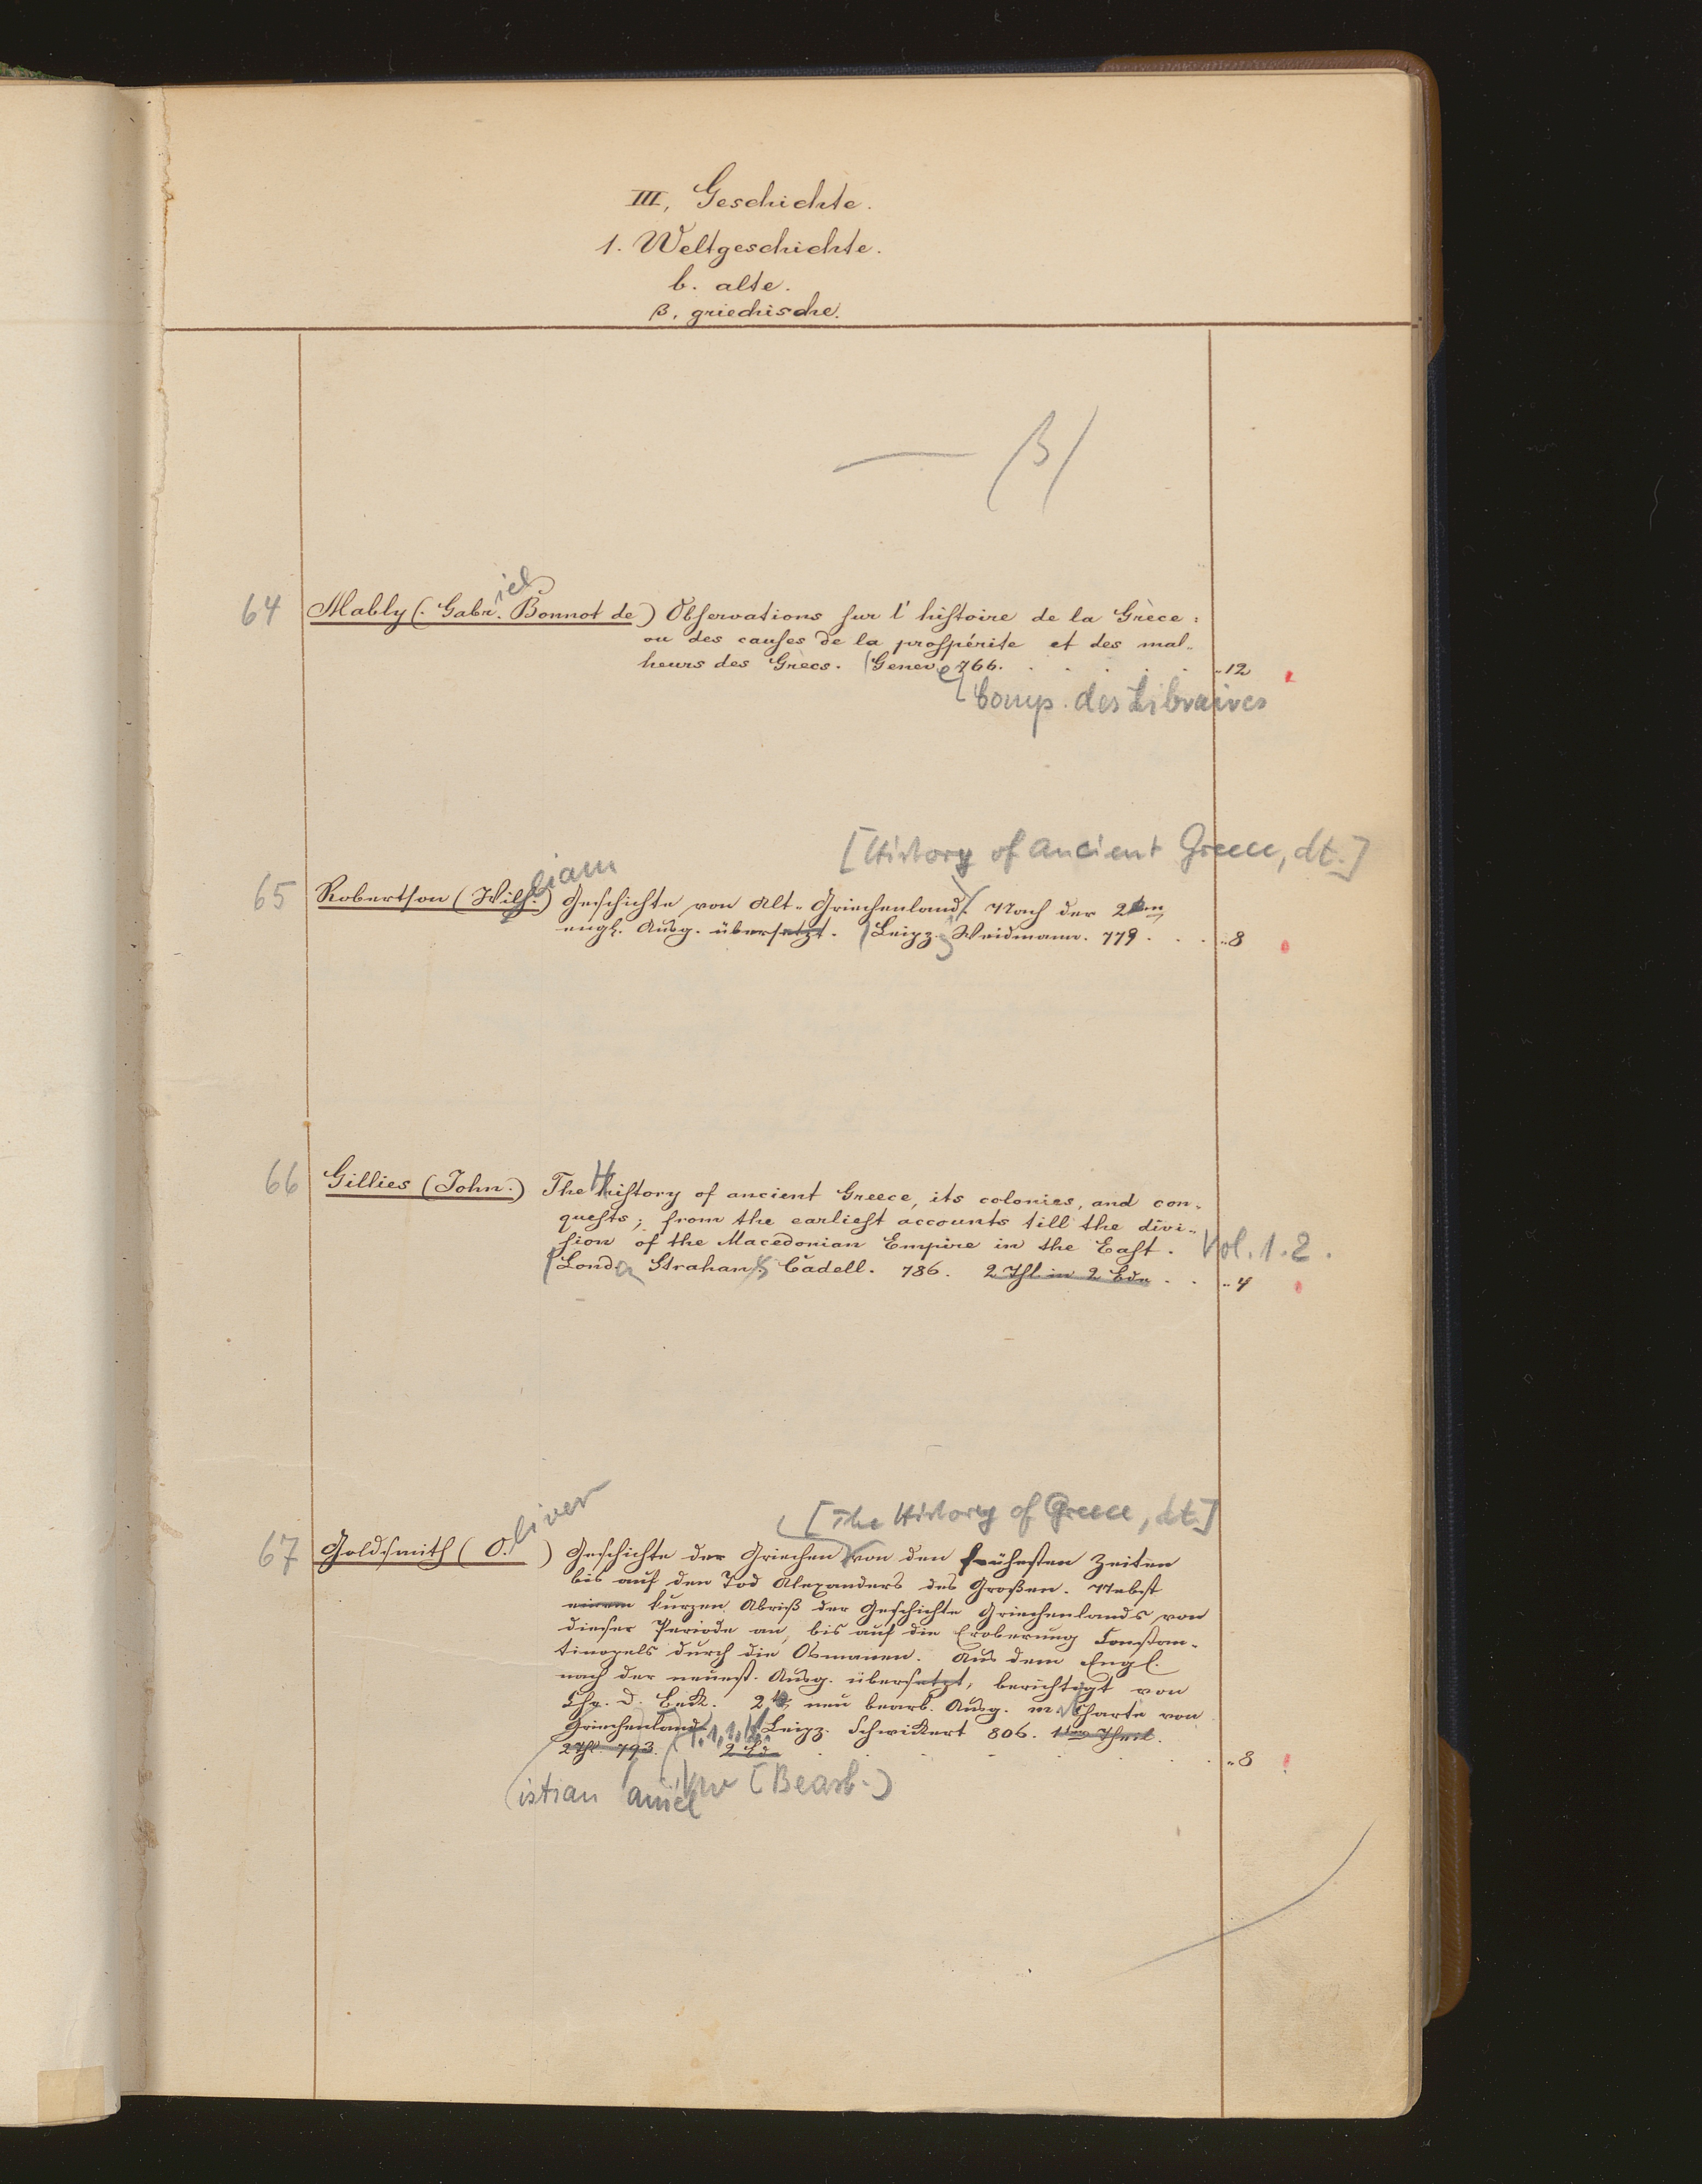 III, Geschichte.
1. Weltgeschichte.
b. alte.
β, griechische.
— β/
64 Mably (. Gabr.iel Bonnot de) Obſervations ſur l' hiſtoire de la Grèce:
ou des cauſes de la proſpérite et des mal-
heurs des Grècs. (Geneve 766. . . . . . „12
Comp. des Libraires
[History of ancient Greece, dt.]
65 Robertſon (Wilh.liam) Geſchichte von Alt-Griechenland. Nach der 2ten
engl. Ausg. überſetzt. (Leipz. Weidmann. 779. . . „8
66 Gillies (John.) The Hiſtory of ancient Greece, its colonies, and con-
queſts; from the earlieſt accounts till the divi-
ſion of the Macedonian Empire in the Eaſt. Vol. 1.2.
(Lond. Strahan & Cadell. 786. 2 Thl in 2 Bdn . . „4
[The History of Greece, dt.]
67 Goldſmith (O.liver) Geſchichte der Griechen von den früheſten Zeiten
bis auf den Tod Alexanders des Großen. Nebst
einem kurzen Abriß der Geſchichte Griechenlands von
dieſer Periode an, bis auf die Eroberung Conſtan-
tinopels durch die Osmanen. Aus dem Engl.
nach der neueſt. Ausg. überſetzt, berichtigt von
Chr. D. Beck. 2te neu bearb. Ausg. m. Charte von
Griechenland. Leipz. Schwickert 806. 1ter Theil.
2 Thl. 793. 2 Bd. . . . . . „8
istian aniel (Bearb.)